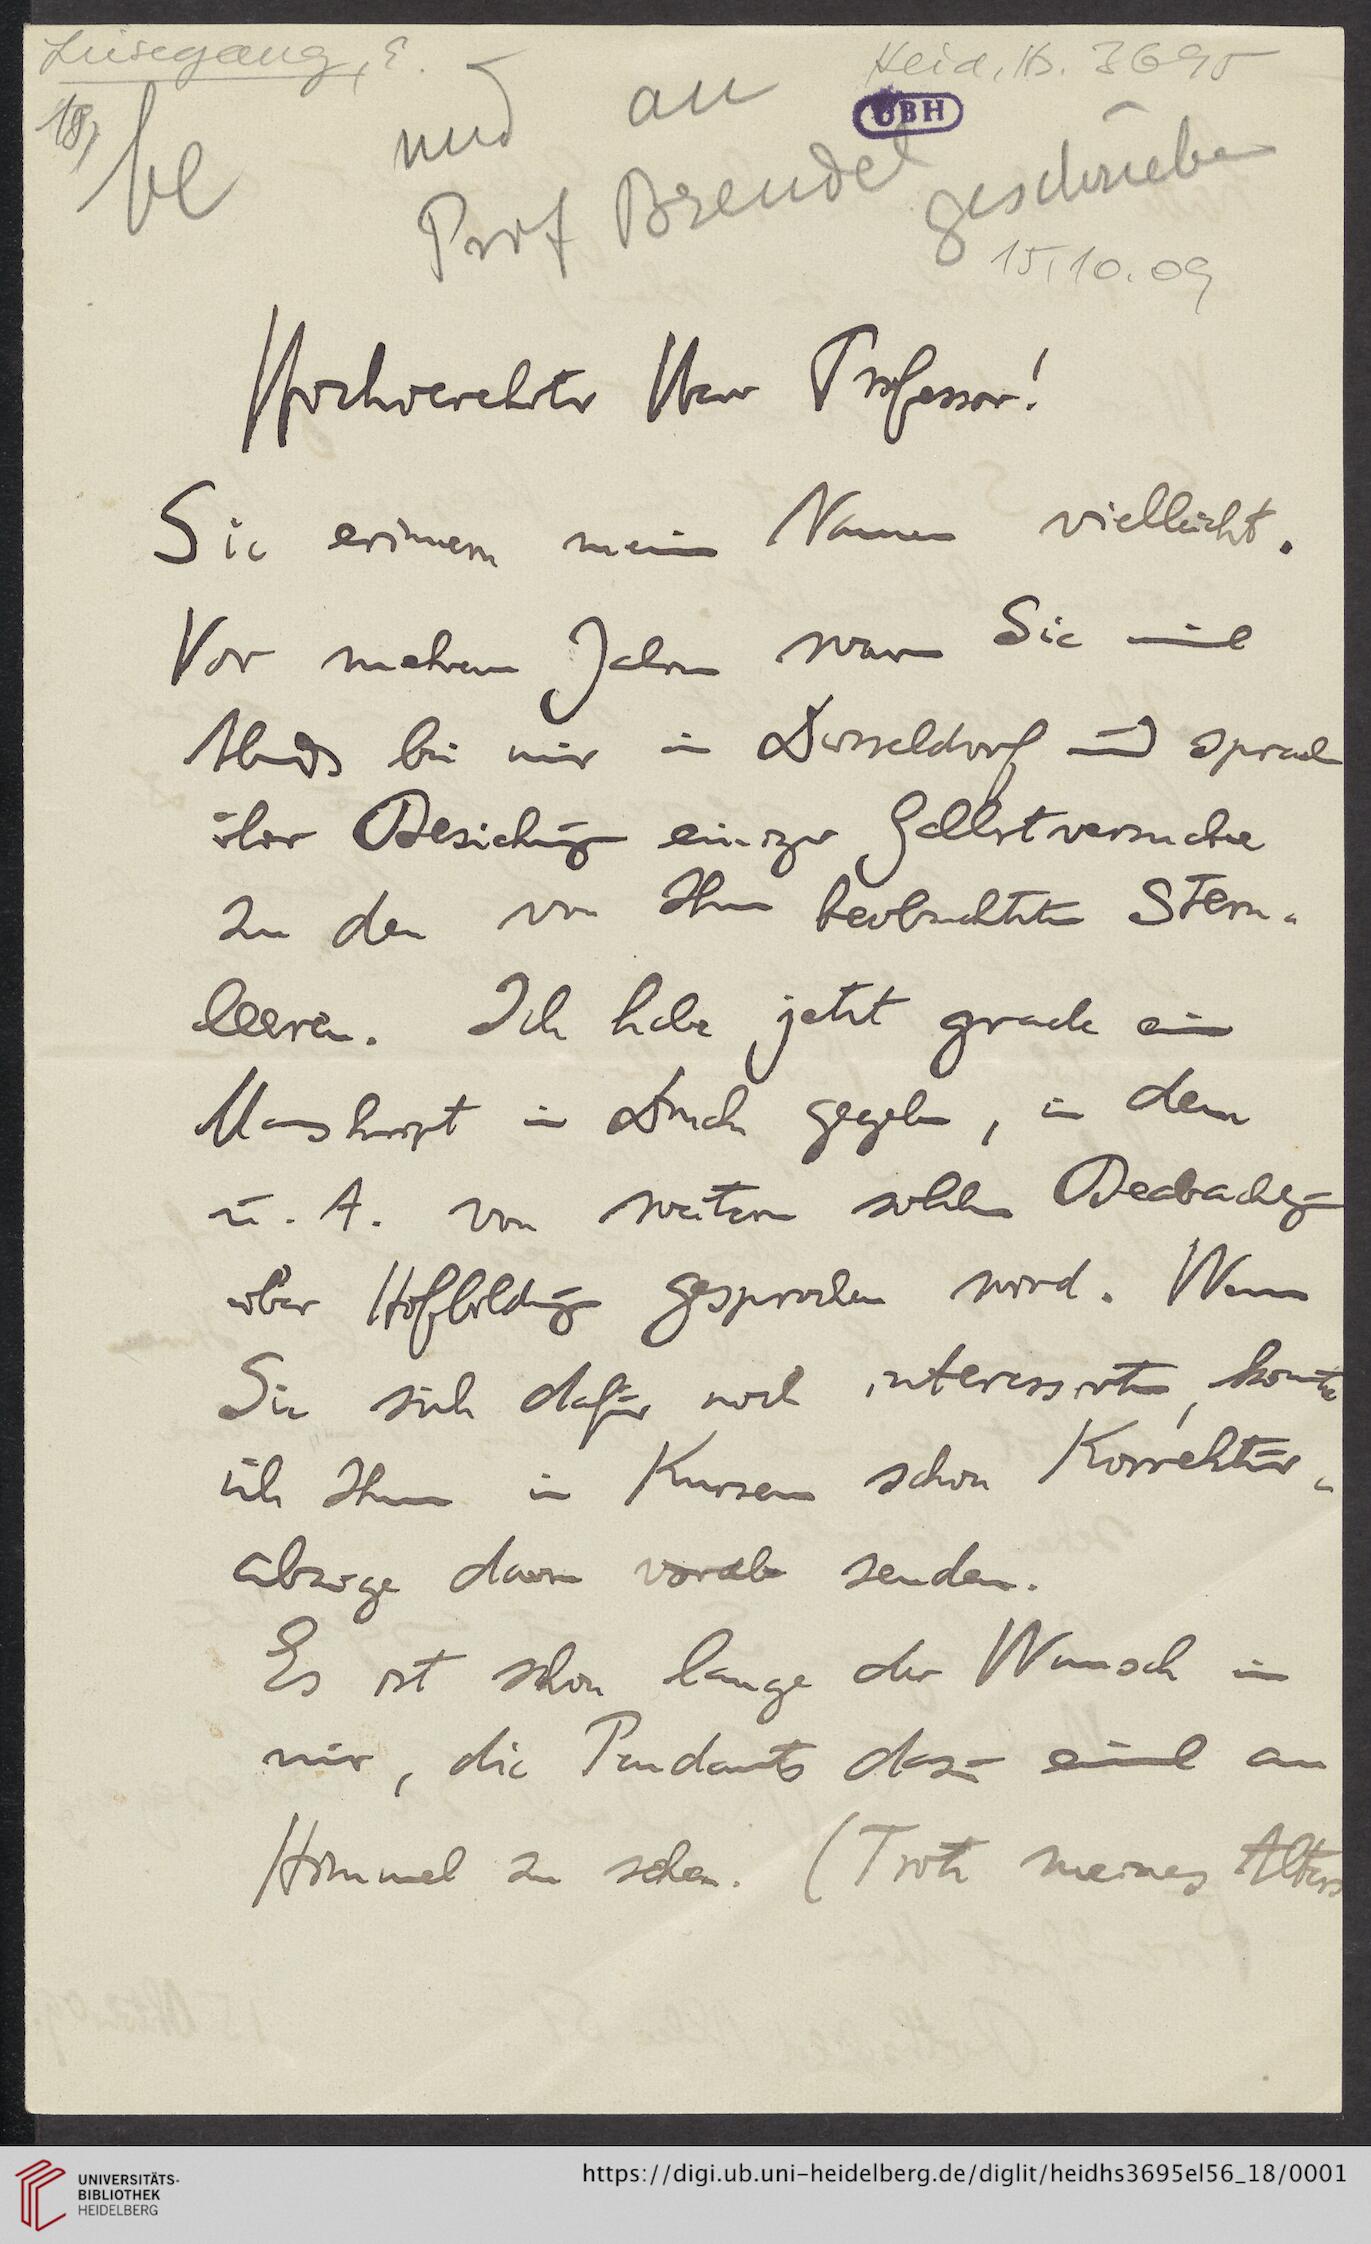 Liesegang, E.
Heid. Hs. 3695
18,
be
und an
UBH
Prof Brendel geschrieben
15.10.09
Hochverehrter Herr Professor!
Sie erinnern mein Namen vielleicht.
Vor mehren Jahren waren Sie mal
Abends bei mir in Düsseldorf und sprach
über Beziehung einiger Gallertversuche
zu den von Ihnen beobachteten Stern-
leeren. Ich habe jetzt grade ein
Manuskript in Druck gegeben, in dem
u. A. von weitern solchen Beobachtg
über Hofbildung gesprochen wird. Wenn
Sie sich dafür noch interessirten, könnte
ich Ihnen in Kurzem schon Korrektur-
abzüge davon vorab senden.
Es ist schon lange der Wunsch in
mir, die Pendants dazu einmal am
Himmel zu sehen. (Trotz meines Alters
UNIVERSITÄTS-
BIBLIOTHEK
HEIDELBERG
https://digi.ub.uni-heidelberg.de/diglit/heidhs3695el56_18/0001